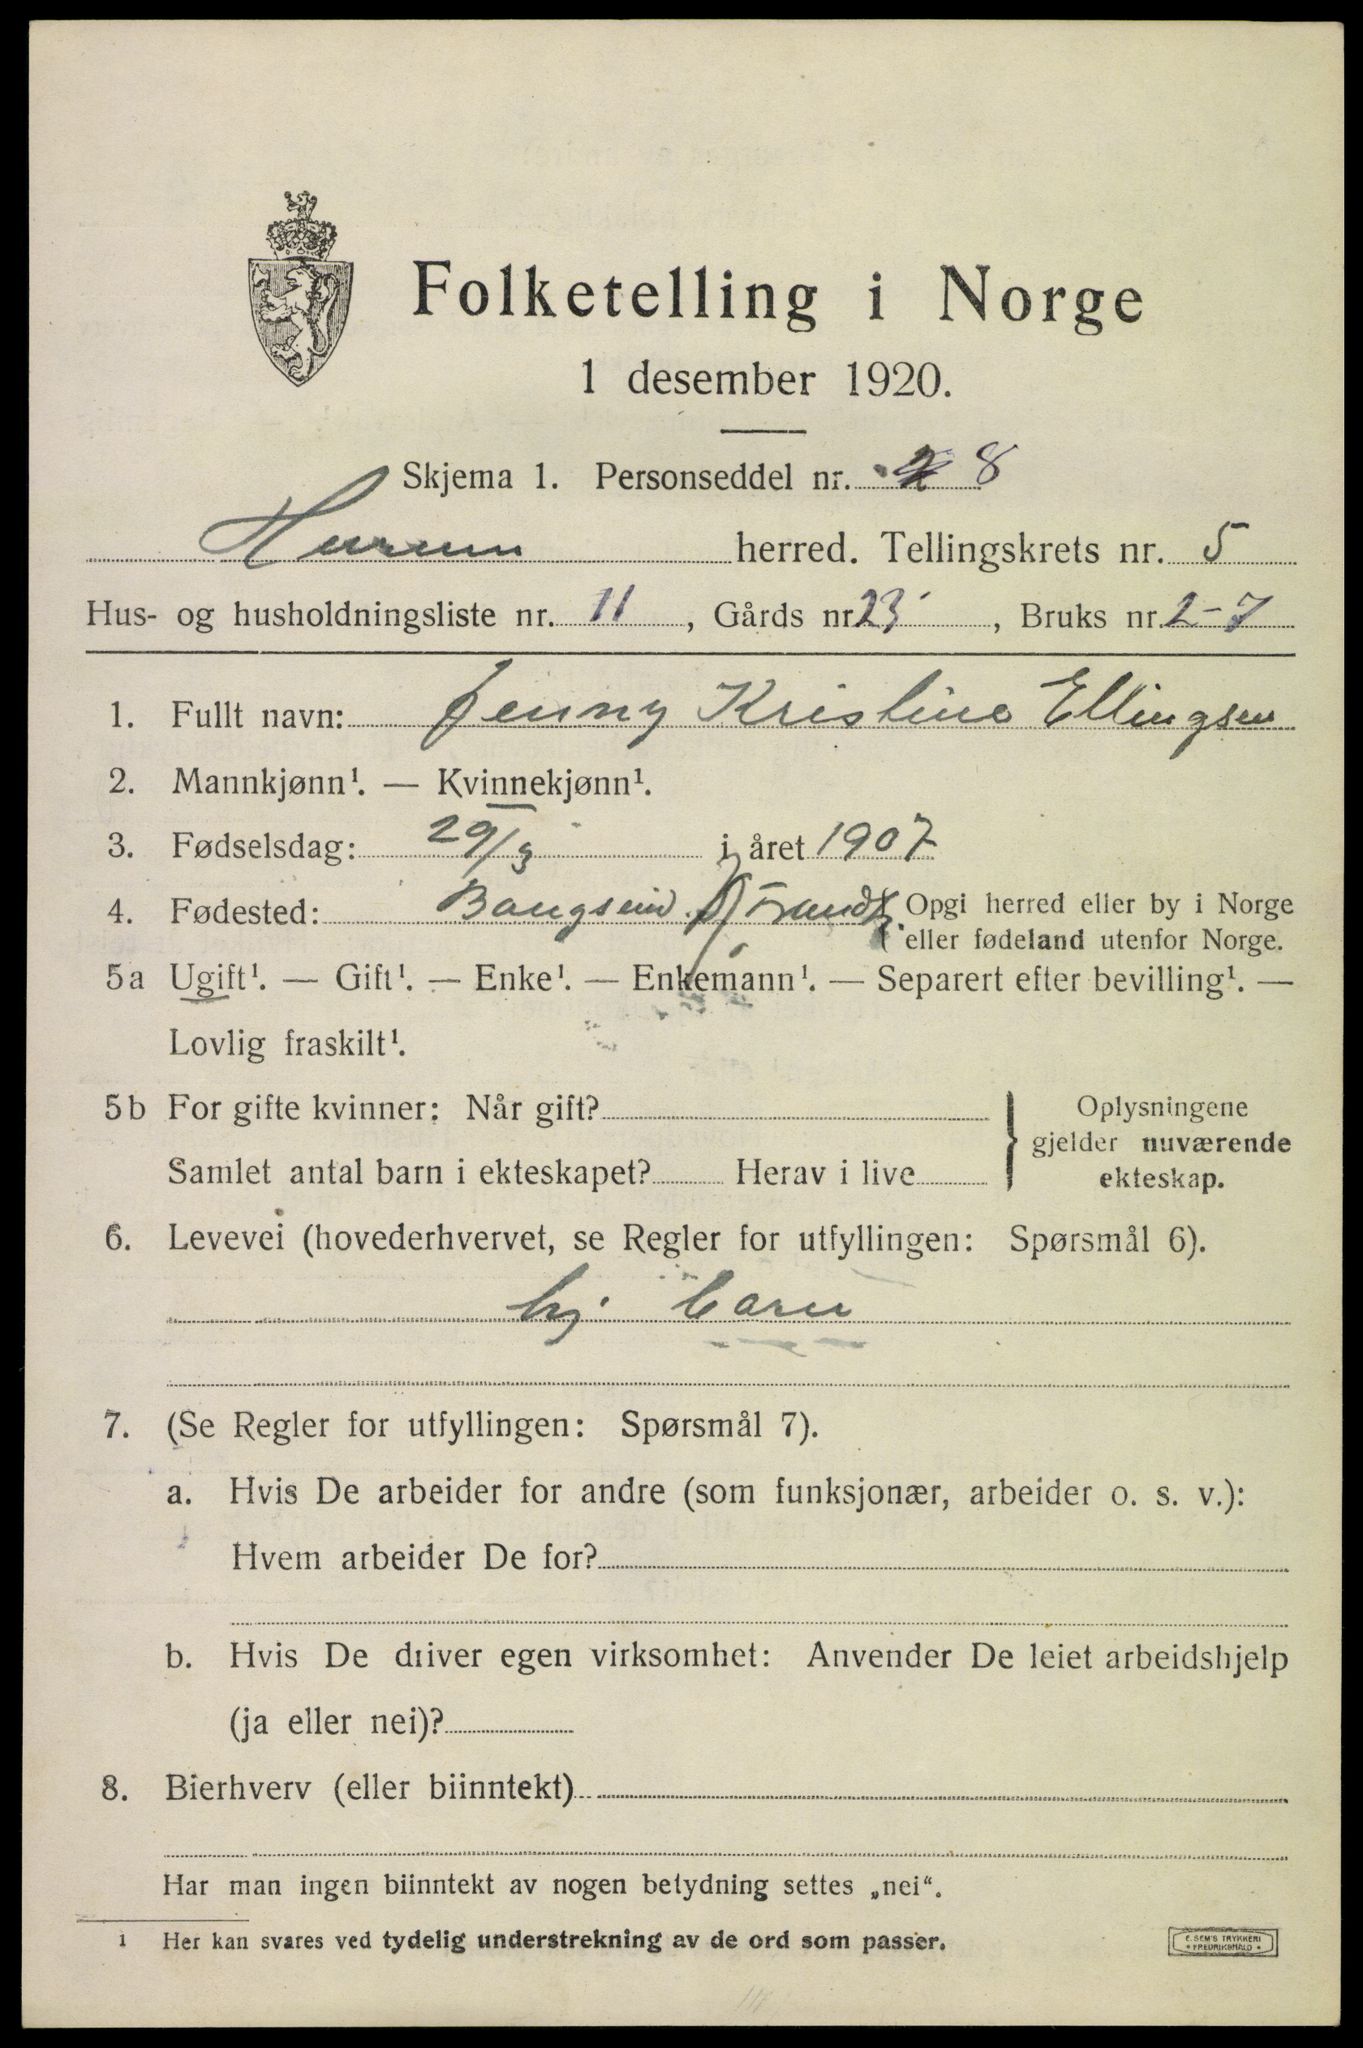 Folketelling i Norge
1 desember 1920.
Skjema 1. Personseddel nr. 8
Hurum herred. Tellingskrets nr. 5
Hus- og husholdningsliste nr. 11, Gårds nr. 23, Bruks nr. 2-7
1. Fullt navn: Jenny Kristine Ellingsen
2. Mannkjønn¹. — Kvinnekjønn¹.
3. Fødselsdag: 29/3 i året 1907
4. Fødested: Strand Opgi herred eller by i Norge
eller fødeland utenfor Norge.
5a Ugift¹. — Gift¹. — Enke¹. — Enkemann¹. — Separert efter bevilling¹. —
Lovlig fraskilt¹.
5b For gifte kvinner: Når gift? Oplysningene
gjelder nuværende
Samlet antal barn i ekteskapet? Herav i live
ekteskap.
6. Levevei (hovederhvervet, se Regler for utfyllingen: Spørsmål 6).
hj. barn
7. (Se Regler for utfyllingen: Spørsmål 7).
a. Hvis De arbeider for andre (som funksjonær, arbeider o. s. v.):
Hvem arbeider De for?
b. Hvis De driver egen virksomhet: Anvender De leiet arbeidshjelp
(ja eller nei)?
8. Bierhverv (eller biinntekt)
Har man ingen biinntekt av nogen betydning settes „nei“.
1 Her kan svares ved tydelig understrekning av de ord som passer.
E. SEM'S TRYKKERI
FREDRIKSHALD